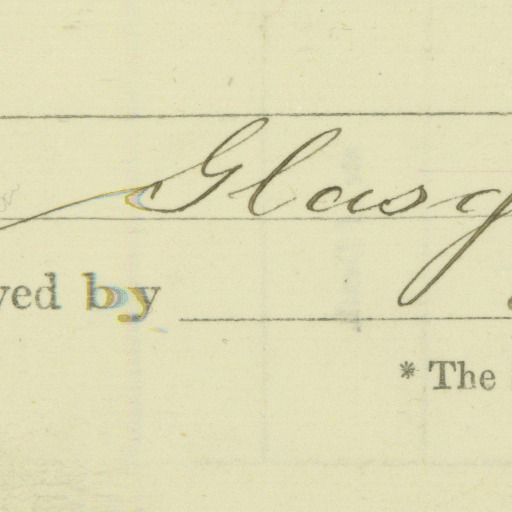 Glasg
yed by
* The